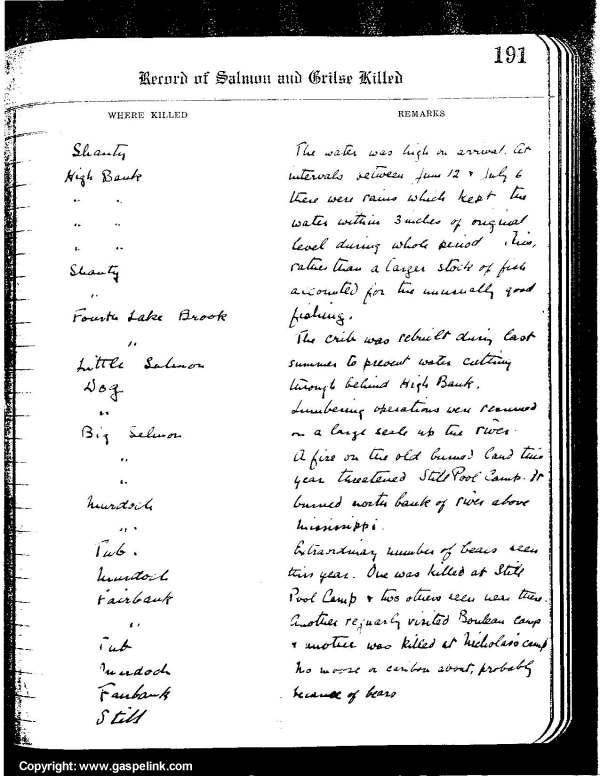 191
Record of Salmon and Grilse Killed
WHERE KILLED
REMARKS
Shanty
High Bank
" "
" "
" "
Shanty
"
Fourth Lake Brook
"
Little Salmon
Dog
"
Big Salmon
"
"
Murdoch
"
Tub.
Murdoch
Fairbank
"
Tub
Murdoch
Fairbank
Still
The water was high on arrival. At
intervals between June 12 & July 6
there were rains which kept the
water within 3 inches of original
level during whole period. This,
rather than a larger stock of fish
accounted for the unusually good
fishing.
The crib was rebuilt during last
summer to prevent water cutting
through behind High Bank.
Lumbering operations were resumed
on a large scale up the river.
A fire on the old burned land this
year threatened Still Pool Camp. It
burned north bank of river above
Mississippi.
Extraordinary number of bears seen
this year. One was killed at Still
Pool Camp & two others seen near there.
Another regularly visited Bonlean camp
& another was killed at Nicholas's camp
No moose or caribou about, probably
because of bears
Copyright: www.gaspelink.com